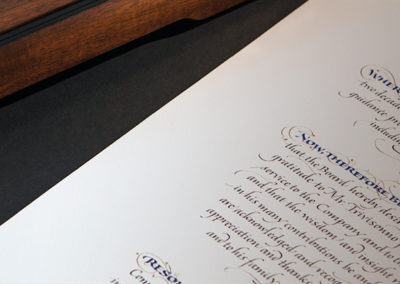 WHERE
two decad
guidance pr
indus
NOW, THEREFORE BE
that the Board hereby decl
gratitude to Mr. Trivisonno
service to the Company and to
and that the wisdom and insight
in his many contributions be and
are acknowledged and reco
appreciation and thanks
and to his family
RESO
Com